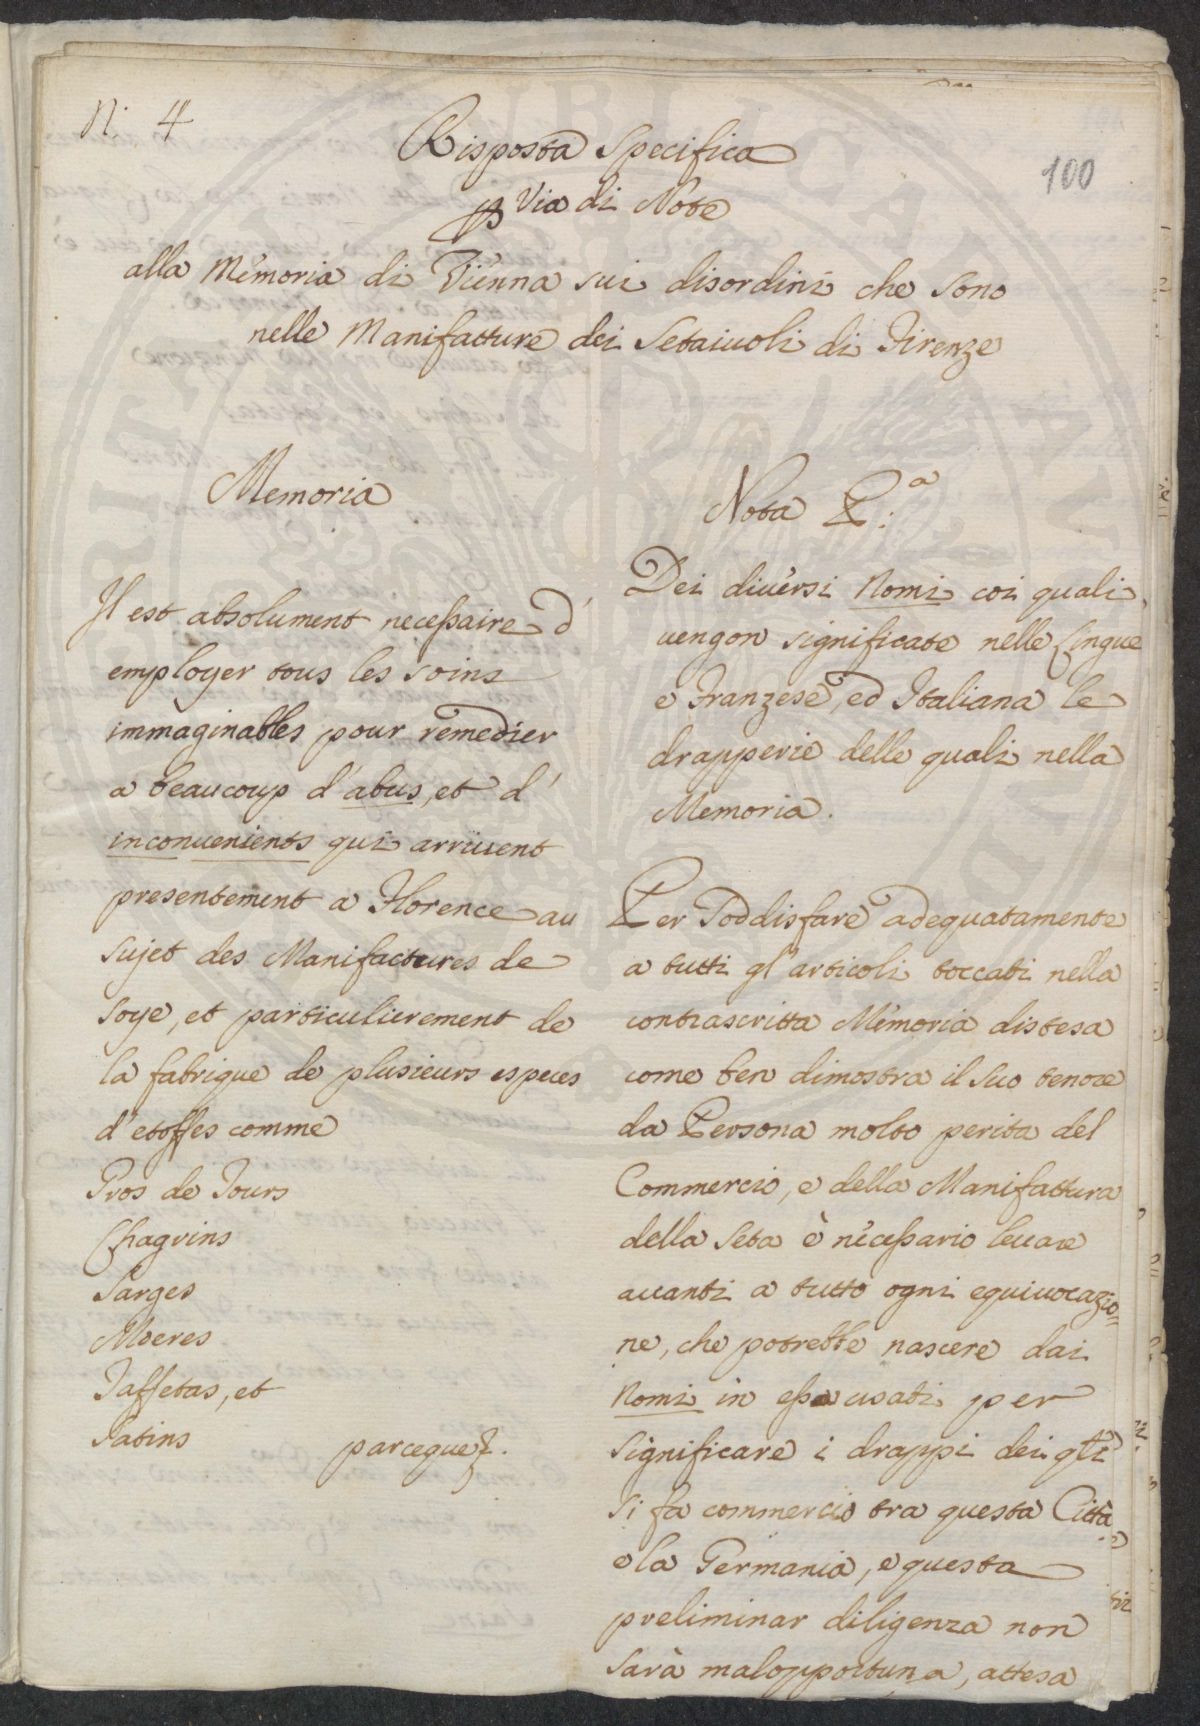 N. 4
100
Risposta Specifica
p Via di Note
alla Memoria di Vienna sui disordini che sono
nelle Manifatture dei Setaiuoli di Firenze
Memoria
Il est absolument necessaire d'
employer tous les soins
immaginables pour remedier
a beaucoup d'abus, et d'
inconuenients qui arriuent
presentement a Florence au
sujet des Manifactures de
soye, et particulierement de
la fabrique de plusieurs especes
d'etoffes comme
Gros de Tours
Chagrins
Sarges
Moeres
Taffetas, et
Satins parceque &.
Nota P:a
Dei diuersi Nomi coi quali
uengon significate nelle lingue
e Franzese, ed Italiana le
drapperie delle quali nella
Memoria.
Per Soddisfare adequatamente
a tutti gl'articoli toccati nella
contrascritta Memoria distesa
come ben dimostra il suo tenore
da Persona molto perita del
Commercio, e della Manifattura
della Seta è necessario leuare
auanti a tutto ogni equiuocazio=
ne, che potrebbe nascere dai
Nomi in essa usati per
significare i drappi dei qli
si fa commercio tra questa Città
e la Germania, e questa
preliminar diligenza non
sarà malopportuna, attesa